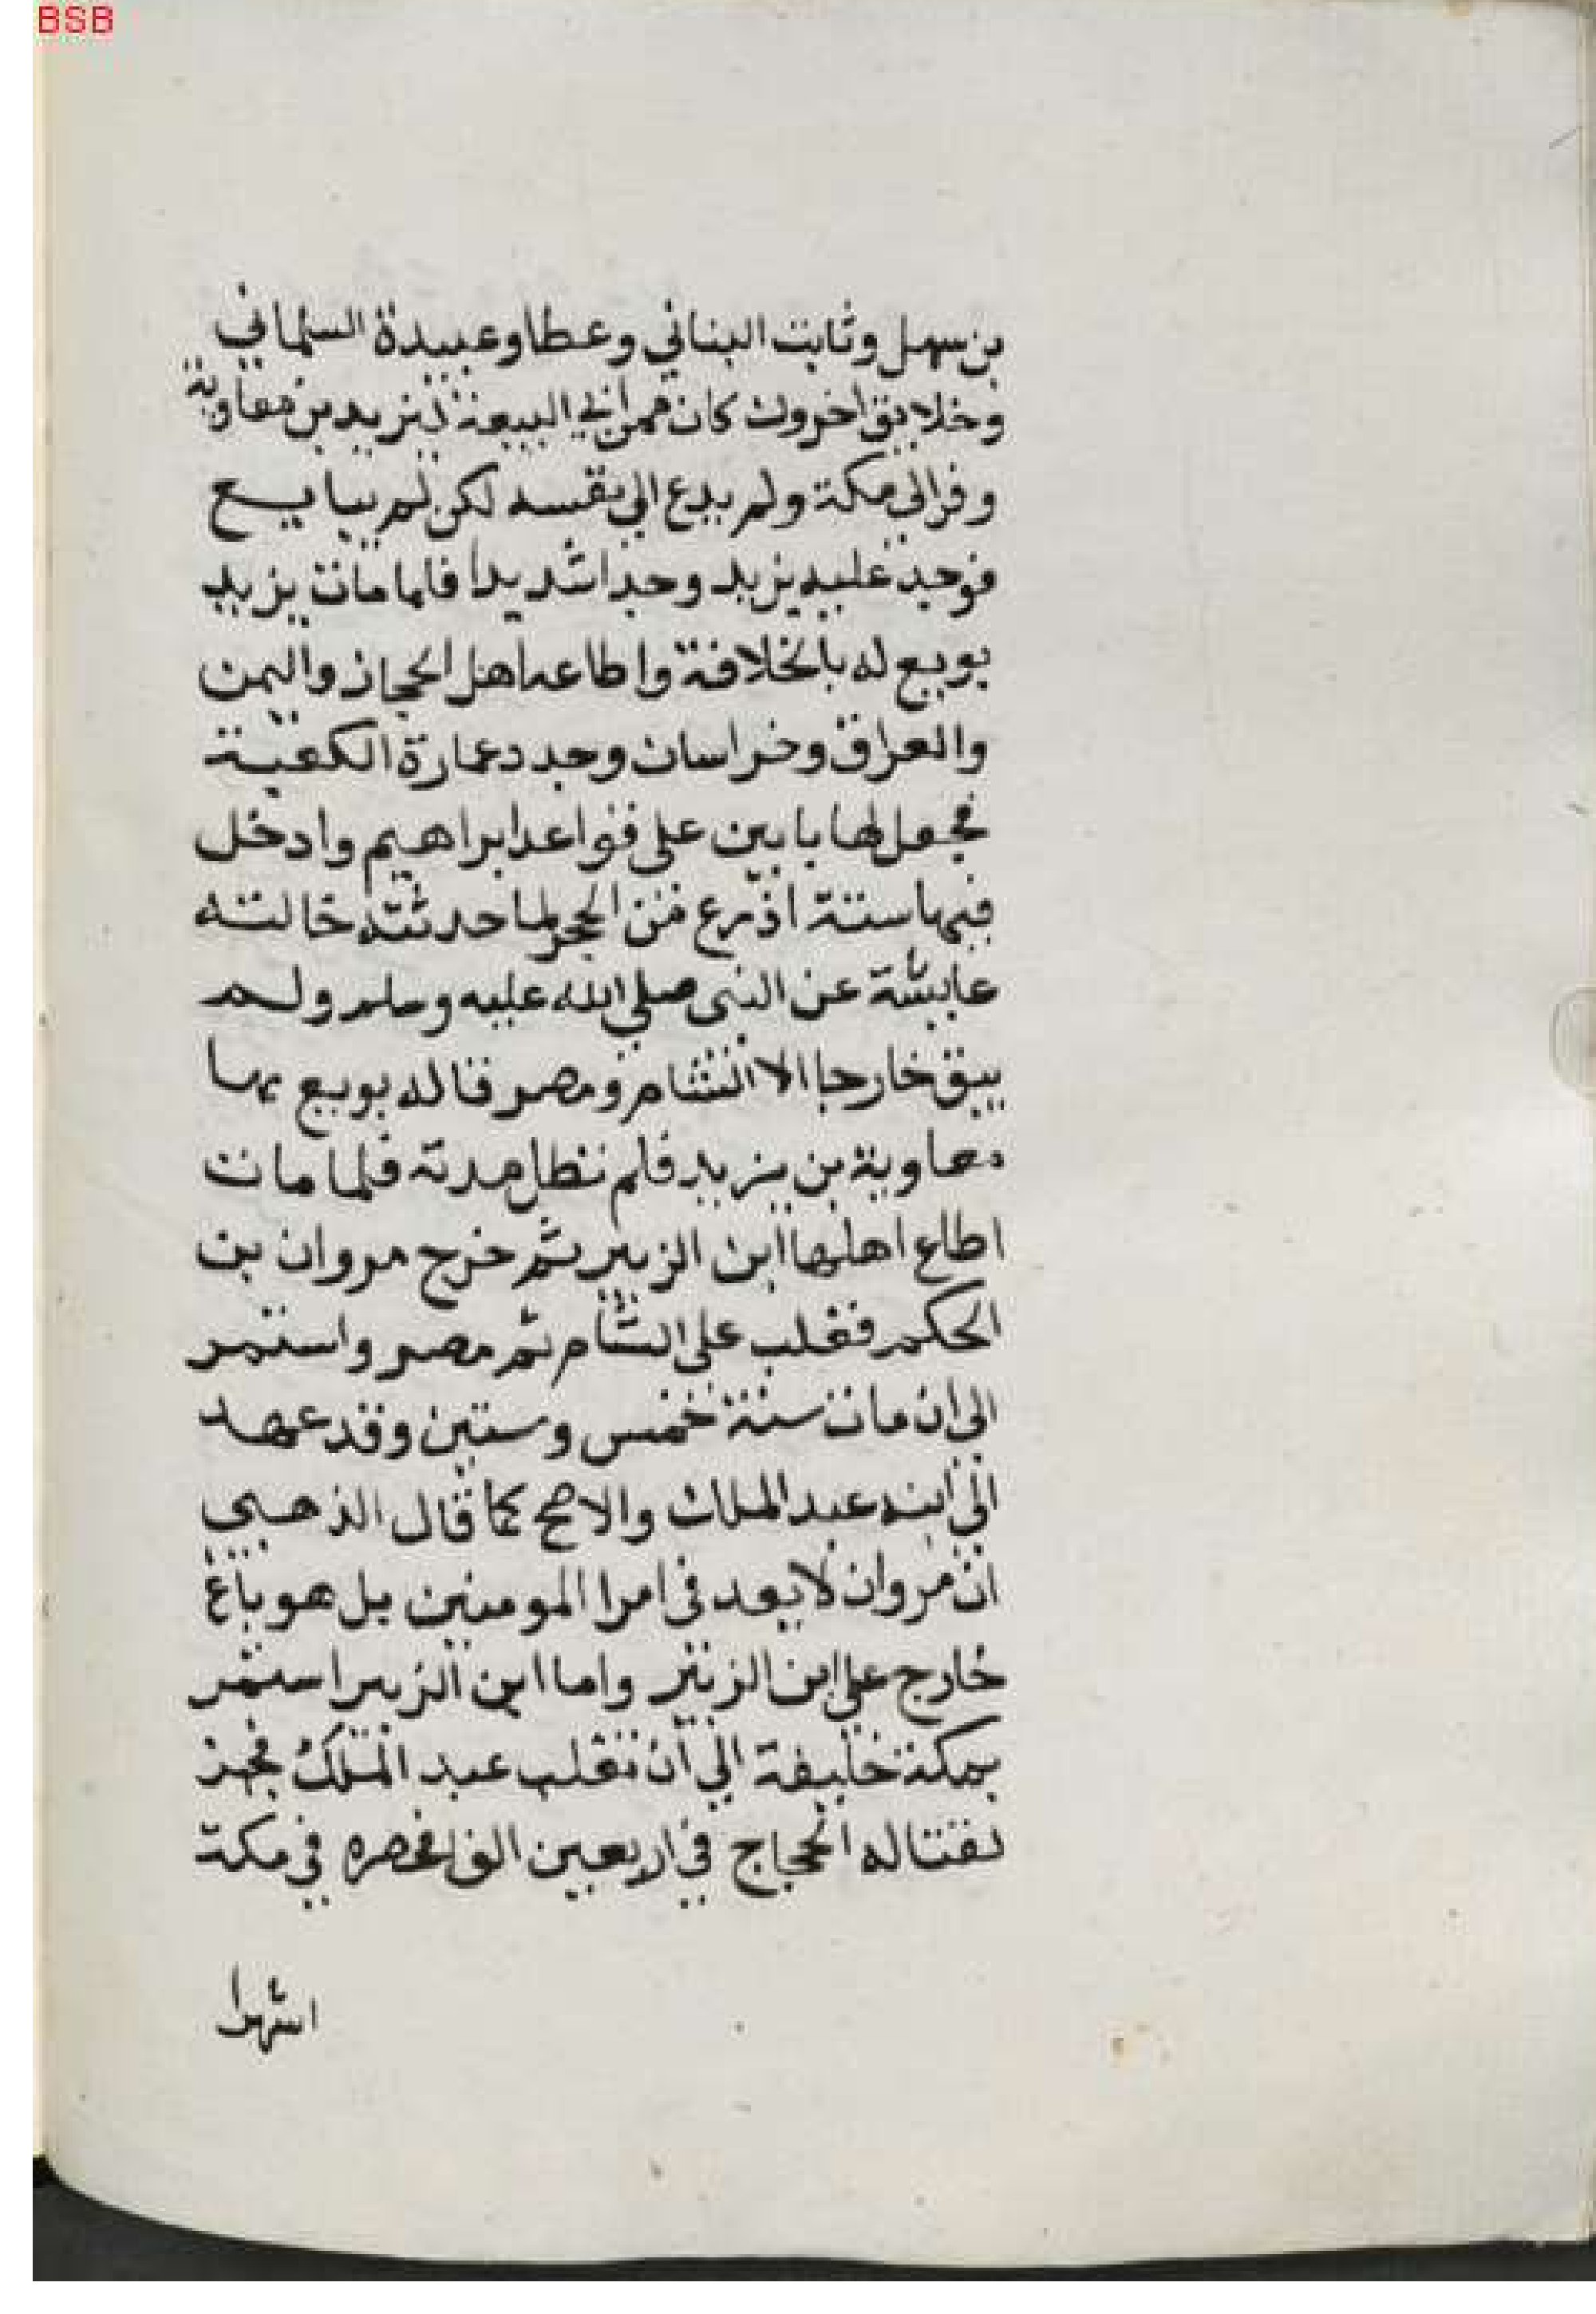 BSB
بن سهل وثابت البناني وعطا وعبيدة السلماني
وخلايق اخرون كان ممن ابي البيعة ليزيد بن معاوية
وفر الي مكة ولم يدع الي نفسه لكن لم يبايع
فوجد عليه يزيد وجدا شديدا فلما مات يزيد
بويع له بالخلافة واطاعه اهل الحجاز واليمن
والعراق وخراسان وجدد عمارة الكعبة
فجعل لها بابين علي قواعد ابراهيم وادخل
فيها ستة اذرع من الحجر لما حدثته خالته
عايشة عن النبي صلي الله عليه وسلم ولم
يبق خارجا الا الشام ومصر فاله بويع بها
معاوية بن يزيد فلم تطل مدته فلما مات
اطاع اهلها ابن الزبير ثم خرج مروان بن
الحكم فغلب علي الشام ثم مصر واستمر
الي ان مات سنة خمس وستين وقد عهد
الي ابنه عبد الملك والاصح كما قال الذهبي
ان مروان لا يعد في امرا المومنين بل هو باغ
خارج علي ابن الزبير واما ابن الزبير استمر
بمكة خليفة الي ان تغلب عبد الملك فجهز
لقتاله الحجاج في اربعين الفا فحصره في مكة
اشهرا